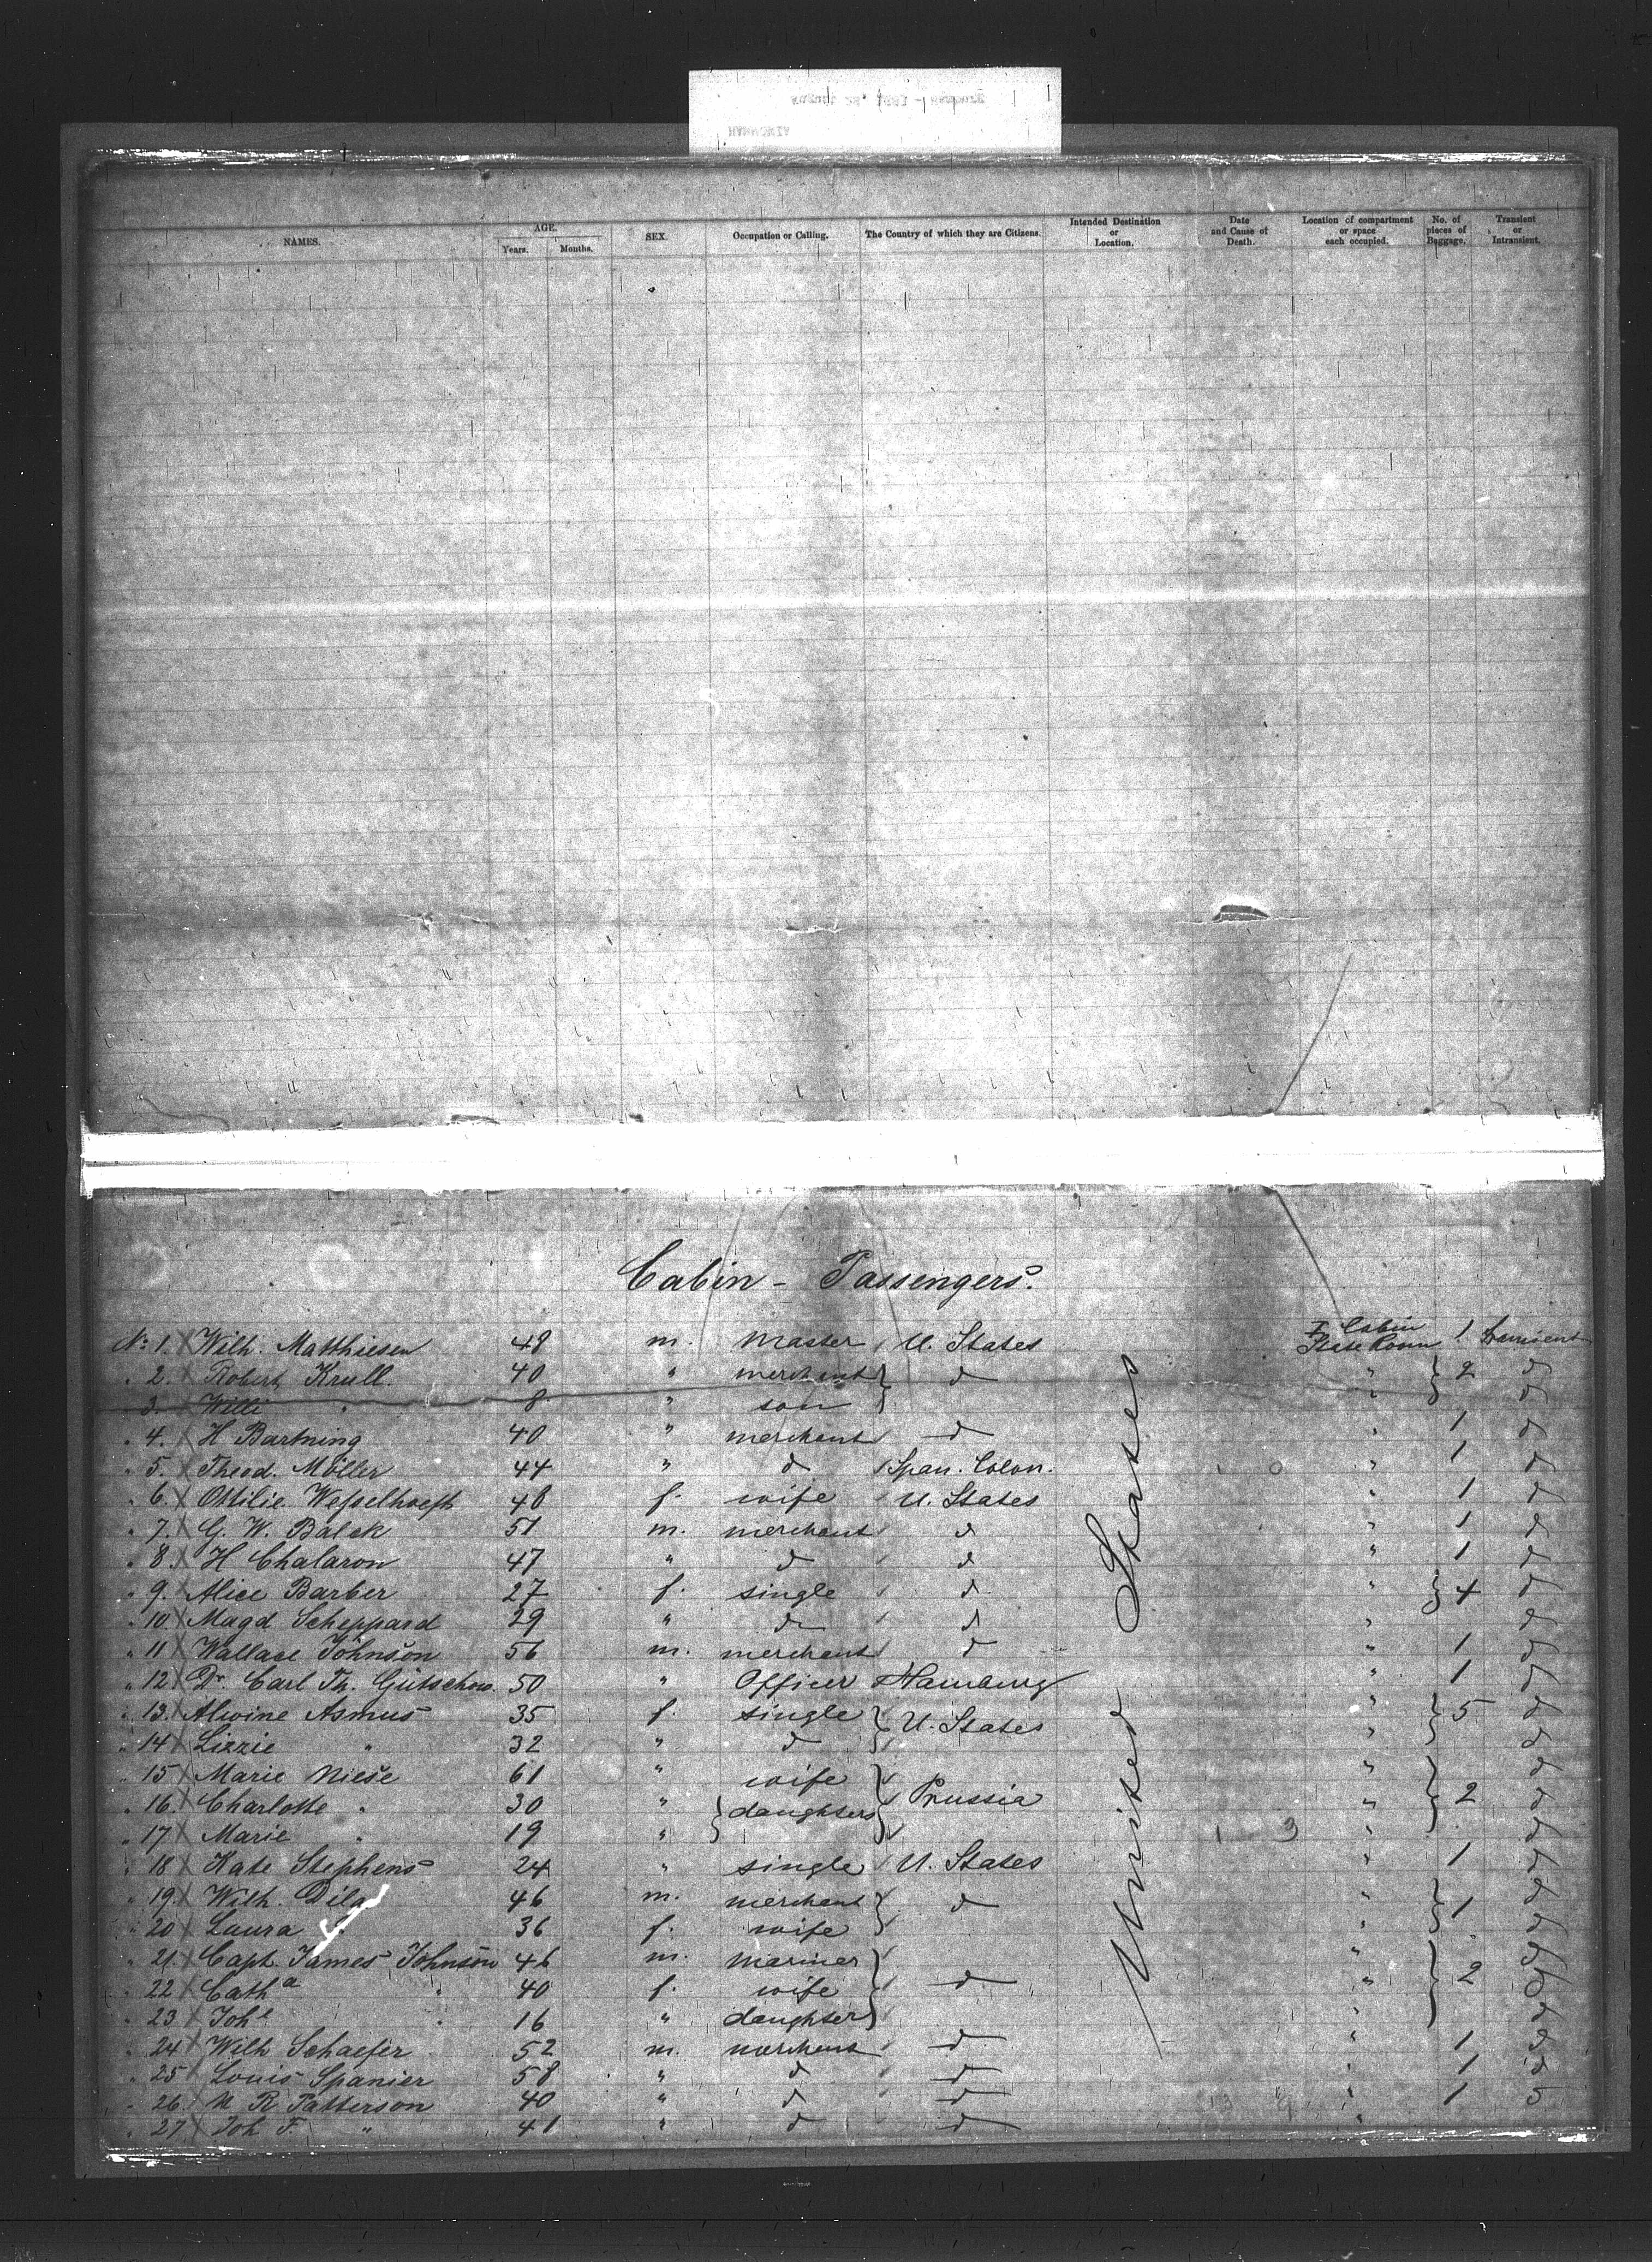 NAMES. AGE. Years. Months. SEX. Occupation or Calling. The Country of which they are Citizens. Intended Destination or Location. Date and Cause of Death. Location of compartment or space each occupied. No. of pieces of Baggage. Transient or Intransient.
Cabin - Passengers.
No. 1. X Wilh. Matthiesen 48 m. master U. States I Cabin State Room 1 transient
" 2. X Robert Krull. 40 " merchant } d " } 2 d
" 3. Willi " 8 " son } " d
" 4. X H Bartning 40 " merchant d " 1 d
" 5. X Theod. Möller 44 " d Span. Colon. " 1 d
" 6. X Ottilie Wesselhoeft 48 f. wife U. States " 1 d
" 7. X G. W. Balck 51 m. merchant d " 1 d
" 8. X H Chalaron 47 " d d " 1 d
" 9. X Alice Barber 27 f. single d " } 4 d
" 10. X Magd Scheppard 29 " d d " d
" 11 X Wallace Johnson 56 m. merchant d " 1 d
" 12 X Dr. Carl Th. Gütschow. 50 " Officer Hamburg " 1 d
" 13. X Alwine Asmus 35 f. single } U. States " } 5 d
" 14 X Lizzie " 32 " d } " d
" 15 X Marie Niese 61 " wife } Prussia " } 2 d
" 16. X Charlotte " 30 " } daughters " d
" 17 X Marie " 19 " } " d
" 18 X Kate Stephens 24 " single U. States " 1 d
" 19. X Wilh. Dilg 46 m. merchant } d " } 1 d
" 20 X Laura 36 f. wife } " d
" 21 X Capt. James Johnson 46 m. mariner } " } 2 d
" 22 X Catha " 40 f. wife } d " d
" 23 X Johe " 16 " daughter } " d
" 24 X Wilh Schaefer 52 m. merchant d " 1 d
" 25 X Louis Spanier 58 " d d " 1 d
" 26. X N R Patterson 40 " d d " 1 d
" 27 X Joh F. " 41 " d d "
United States